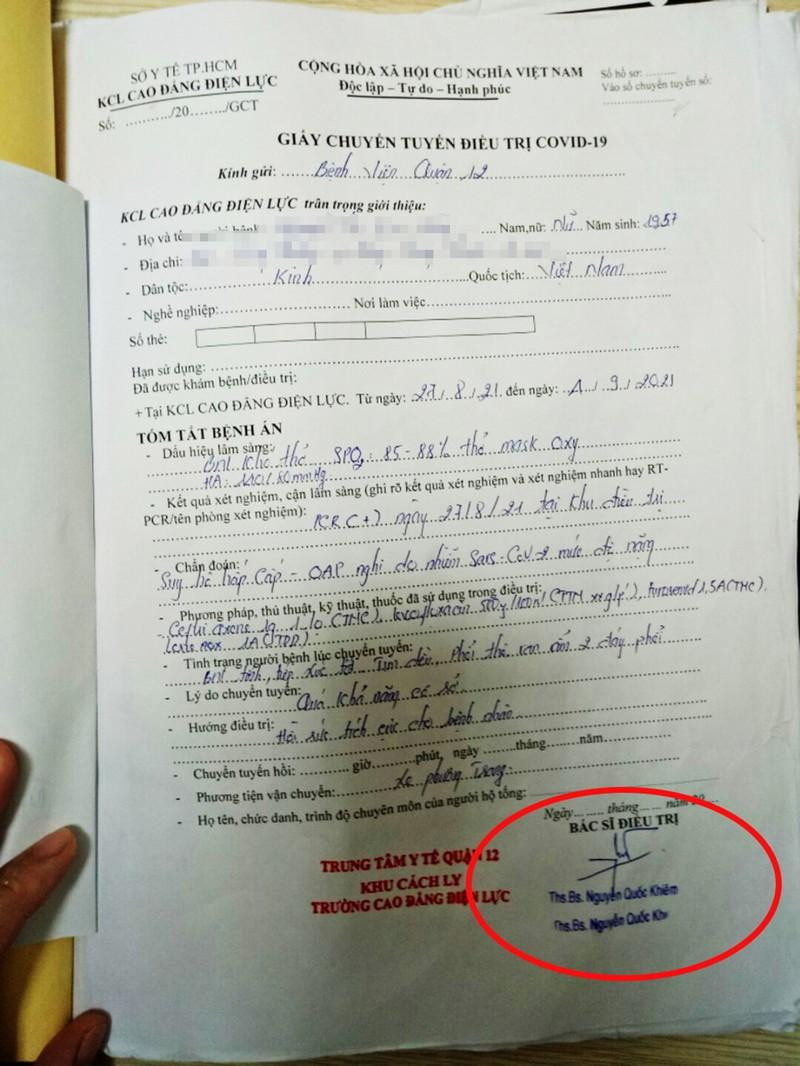 SỞ Y TẾ TP.HCM
KCL CAO ĐẲNG ĐIỆN LỰC
Số: ………./20……../GCT
CỘNG HÒA XÃ HỘI CHỦ NGHĨA VIỆT NAM
Độc lập – Tự do – Hạnh phúc
Số hồ sơ: ………
Vào sổ chuyển tuyến số:
GIẤY CHUYỂN TUYẾN ĐIỀU TRỊ COVID-19
Kính gửi: Bệnh Viện Quận 12
KCL CAO ĐẲNG ĐIỆN LỰC trân trọng giới thiệu:
- Họ và tê Nam,nữ: Nữ Năm sinh: 1957
- Địa chỉ:
- Dân tộc: Kinh Quốc tịch: Việt Nam
- Nghề nghiệp: Nơi làm việc
Số thẻ:
Hạn sử dụng:
Đã được khám bệnh/điều trị:
+ Tại KCL CAO ĐẲNG ĐIỆN LỰC. Từ ngày: 27/8/21 đến ngày: 1/9/2021
TÓM TẮT BỆNH ÁN
- Dấu hiệu lâm sàng:
BN khó thở SPO2: 85-88% thở mask Oxy
HA: mmHg
- Kết quả xét nghiệm, cận lâm sàng (ghi rõ kết quả xét nghiệm và xét nghiệm nhanh hay RT-
PCR/tên phòng xét nghiệm): PCR (+) ngày 27/8/21 tại khu điều trị
- Chẩn đoán:
Suy hô hấp Cấp - OAP nghi do nhiễm Sars-CoV-2 mức độ nặng
- Phương pháp, thủ thuật, kỹ thuật, thuốc đã sử dụng trong điều trị:
- Tình trạng người bệnh lúc chuyển tuyến:
BN tỉnh, tiếp xúc Tim đều, Phổi thô ran ẩm 2 đáy phổi
- Lý do chuyển tuyến: Quá khả năng cơ sở
- Hướng điều trị: Hồi sức tích cực cho bệnh nhân
- Chuyển tuyến hồi: ……….. giờ………phút, ngày ………tháng………năm………
- Phương tiện vận chuyển: Xe phương Trang
- Họ tên, chức danh, trình độ chuyên môn của người hộ tống:
Ngày……… tháng……… năm 20…
BÁC SĨ ĐIỀU TRỊ
TRUNG TÂM Y TẾ QUẬN 12
KHU CÁCH LY
TRƯỜNG CAO ĐẲNG ĐIỆN LỰC
Ths.Bs. Nguyễn Quốc Khiêm
Ths.Bs. Nguyễn Quốc Khi